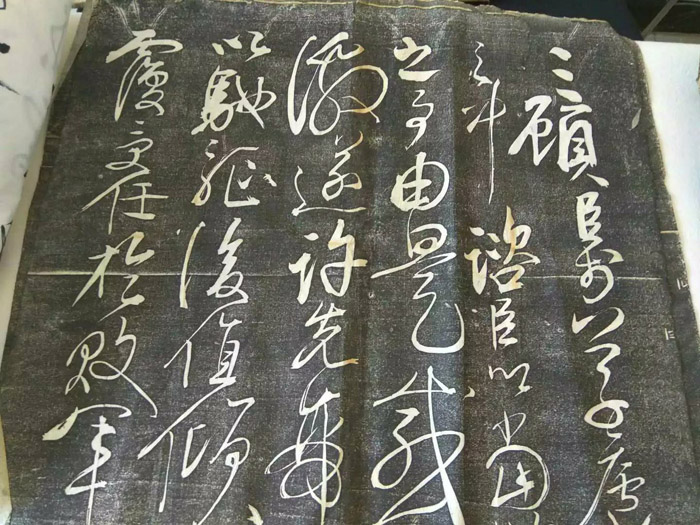 三顧臣於草廬
之中諮臣以當
之事由是感
激遂許先帝
以驅馳後值傾
覆受任於敗軍